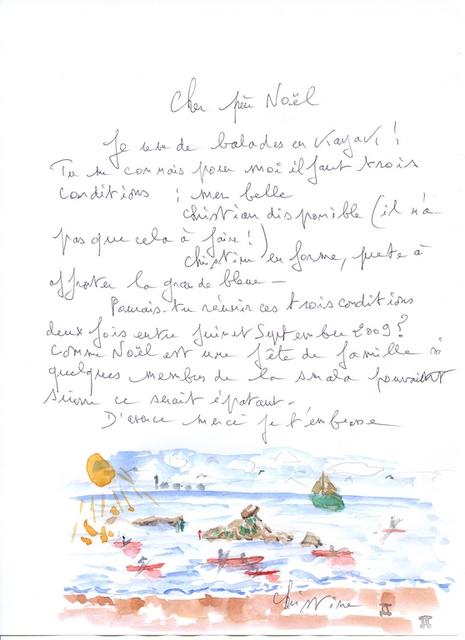 Cher père Noël
Je rêve de balades en Kayak !
Tu me connais pour moi il faut trois
conditions : mer belle
Christian disponible (il n'a
pas que cela à faire !)
Christine en forme, prête à
affronter la grande bleue —
Pourrais-tu réunir ces trois conditions
deux fois entre Juin et Septembre 2009 ?
Comme Noël est une fête de famille si
quelques membres de la smala pouvaient
suivre ce serait épatant.
D'avance merci je t'embrasse
Christine